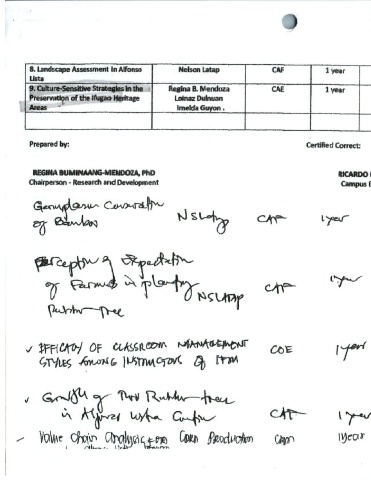 8. Landscape Assessment in Alfonso Lista Nelson Latap CAF 1 year
9. Culture-Sensitive Strategies in the Preservation of the Ifugao Heritage Areas Regina B. Mendoza Loinaz Dulnuan Imelda Guyon . CAE 1 year
Prepared by: Certified Correct:
REGINA BUMINAANG-MENDOZA, PhD RICARDO
Chairperson - Research and Development Campus E
Germplasm Conservation
of Bamboo NSLatap CAF 1 year
Perception & Expectation
of Farmers in planting NSLatap CAF 1 year
Rubber Tree
✓ EFFICACY OF CLASSROOM MANAGEMENT COE 1 year
STYLES AMONG INSTRUCTORS OF
✓ Growth of Rubber tree
in Alfonso Lista CAF 1 year
Value Chain Analysis Corn Production 1 year